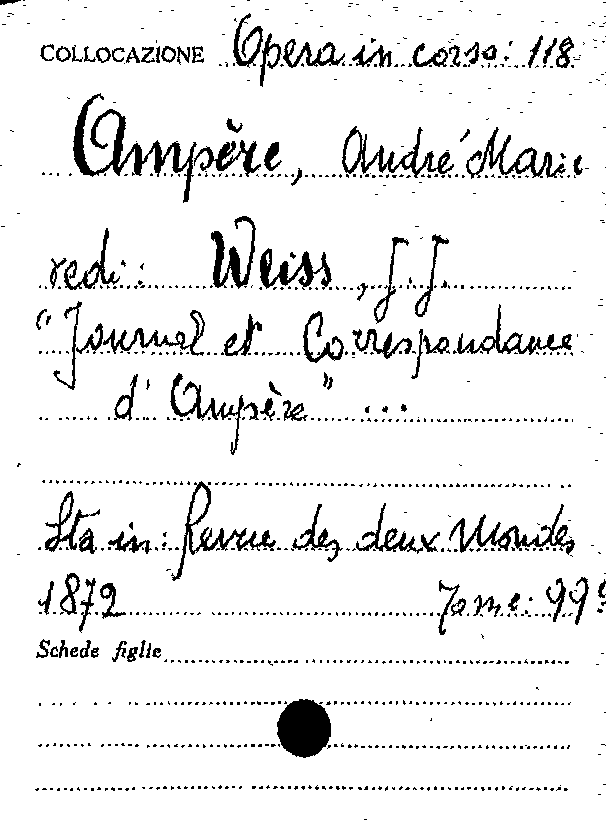 COLLOCAZIONE Opera in corso: 118
Ampère, André Marie
vedi: Weiss, J.J.
"Journal et Correspondance
d'Ampère" ...
Sta in: Revue des deux Mondes
1872 Tome: 99°
Schede figlie